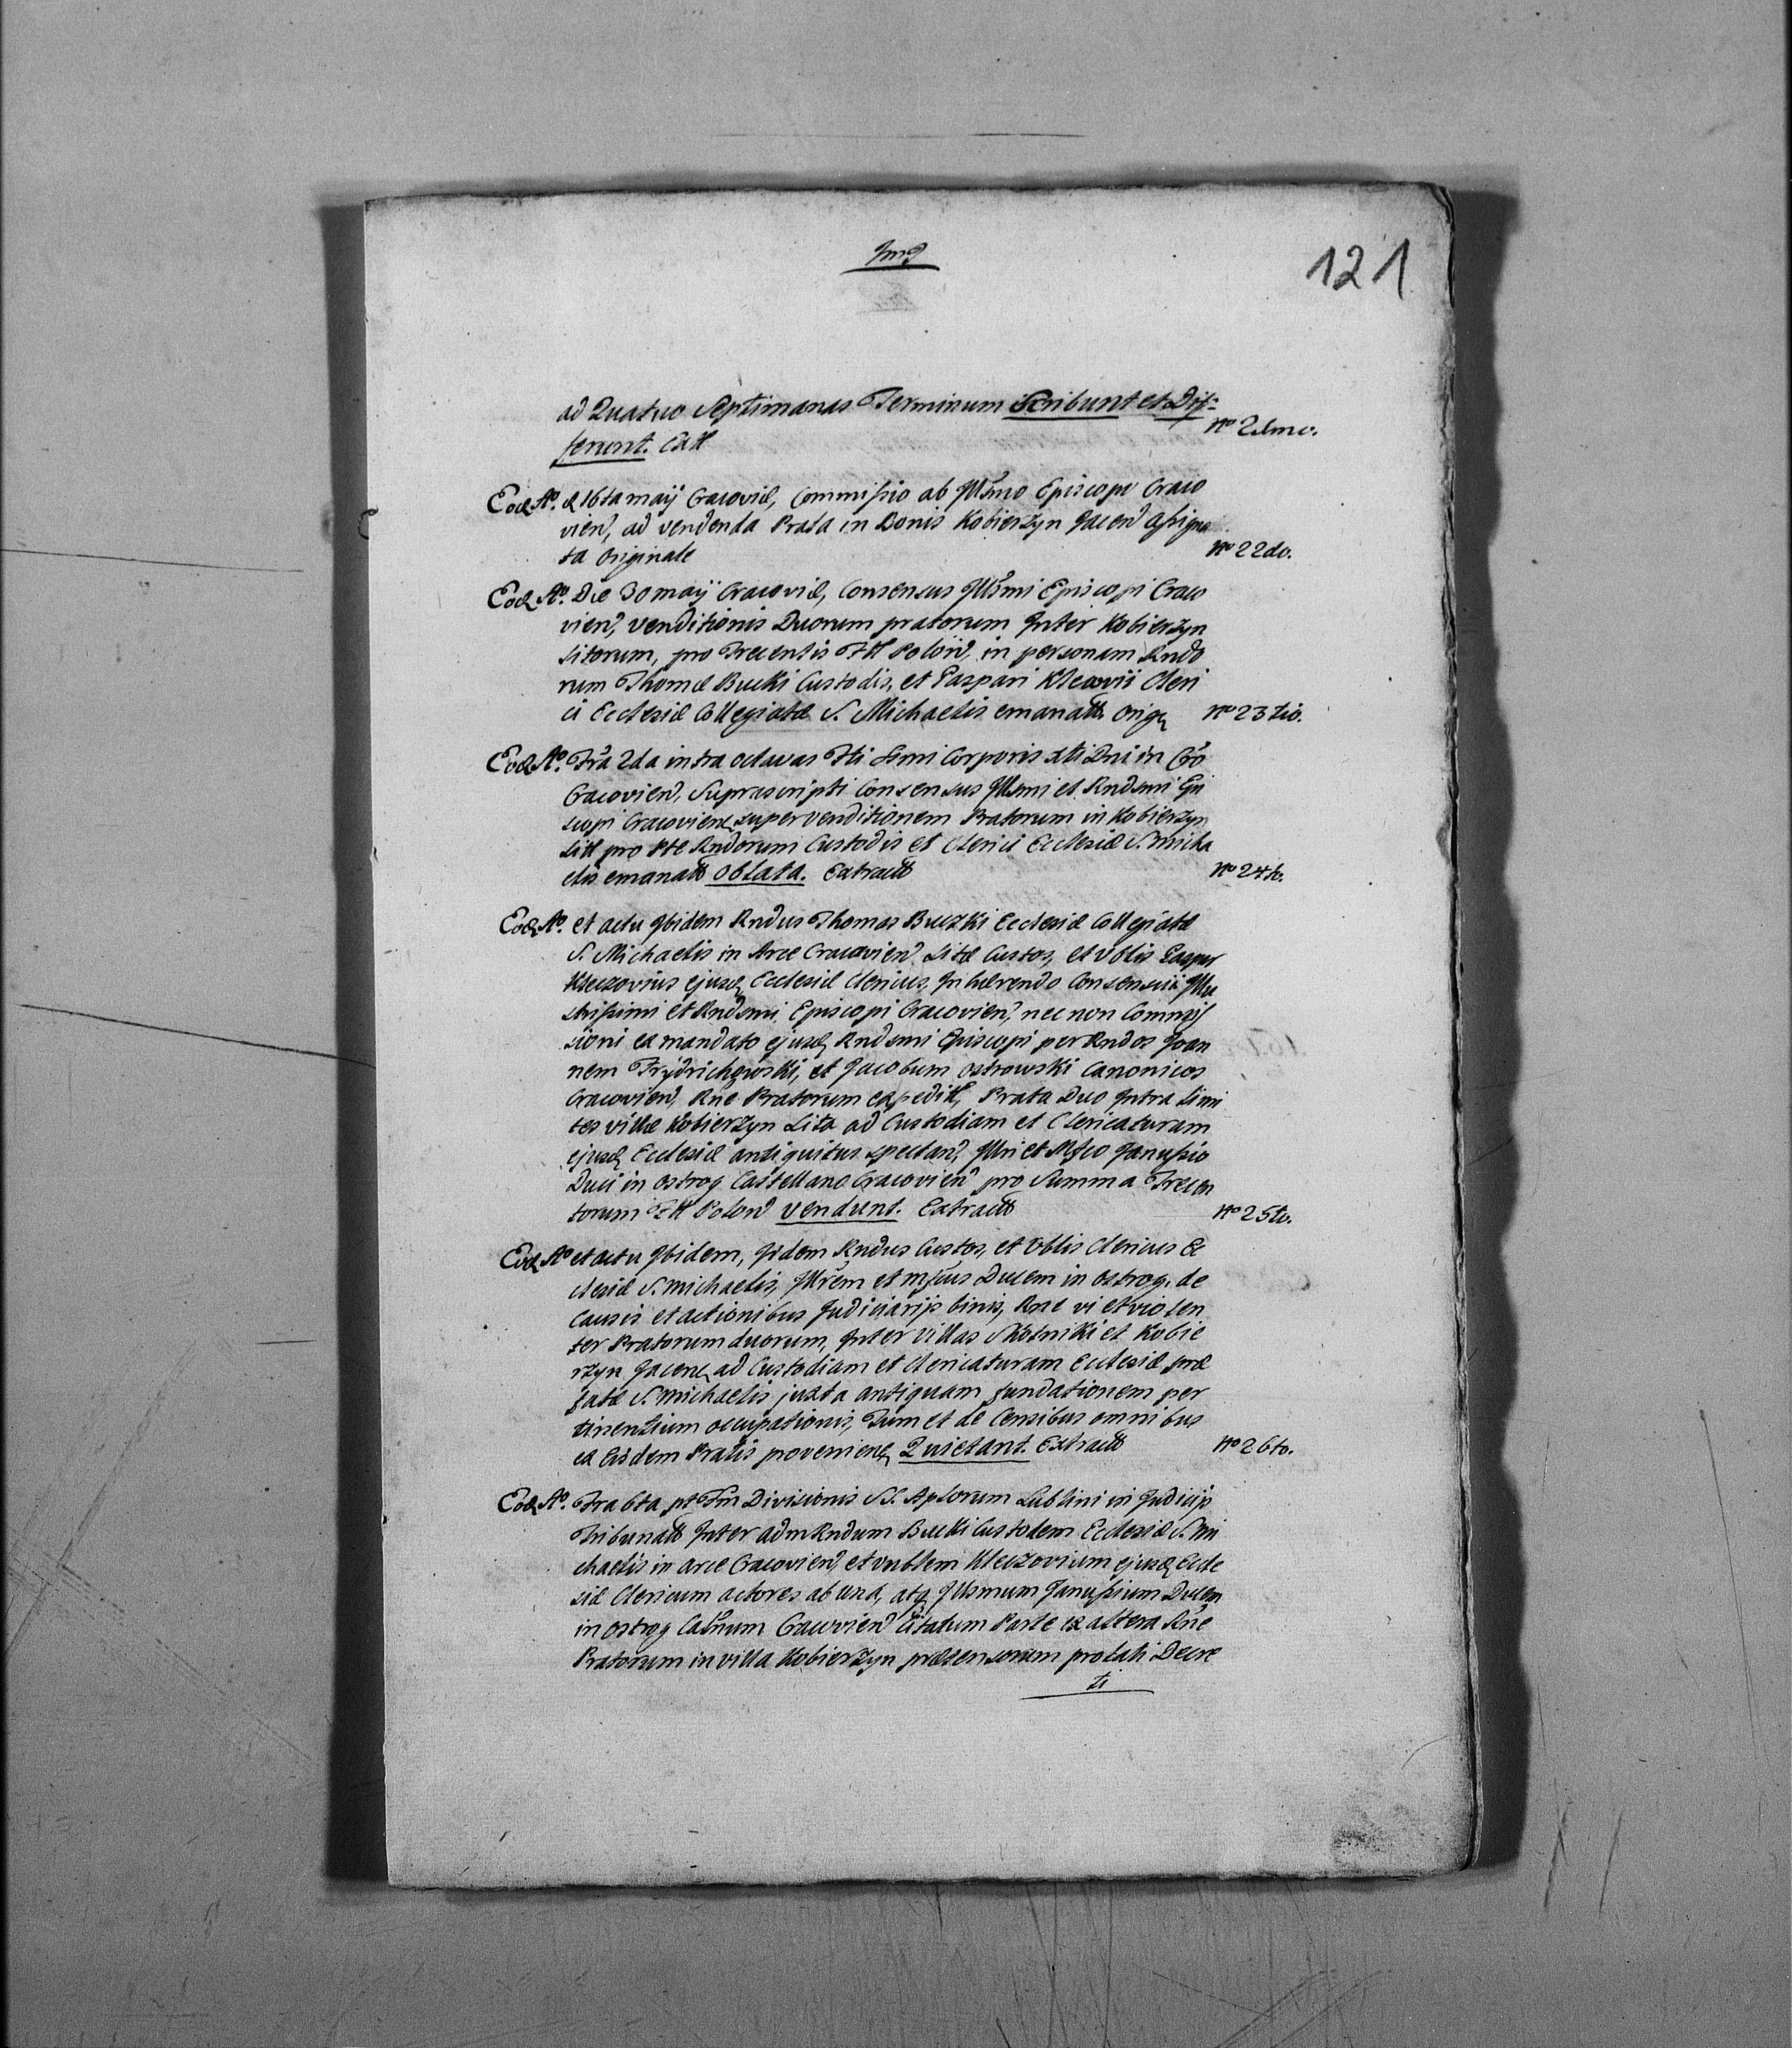 121
ad Quatuo Septimanas Terminum scribunt et Dif-
ferunt. Extt
No 21mo.
Eod Ao. d 16ta maij Cracoviæ, Commissio ab Illmo Episcopo Craco
vien, ad vendenda Prata in Bonis Kobierzyn Jacen assigna
ta originale
No 22do.
Eod Ao. Die 30 maij Cracoviæ, Consensus Illmi Episcopi Craco
vien, venditionis Duorum pratorum Inter Kobierzyn
sitorum, pro Trecentis Fll Polon, in personam Rndo
rum Thomæ Bucki Custodis, et Gaspari Kleczovii Cleri
ci Ecclesiæ Collegiatæ S. Michaelis emanatt Orig
No 23tio.
Eod Ao. Fra 2da intra octavas Fti Ssmi Corporis Xti Dni in Cro
Cracovien, Suprascripti Consensus Illsmi et Rndsmi Epi
scopi Cracovien super venditionem Pratorum in Kobierzyn
sitt pro Pte Rndorum Custodis et Clerici Ecclesiæ S. Micha
elis emanatt oblata. Extractt
No 24to.
Eod Ao. et actu Ibidem Rndus Thomas Buczki Ecclesiæ Collegiatæ
S. Michaelis in Arce Cracovien sitæ Custos, et Vblis Caspar
Kleczovius ejusd Ecclesiæ Clericus, Inhærendo Consensui Illu
strissimi et Rndsmi Episcopi Cracovien, nec non Commis
sioni ex mandato ejusd Rndsmi Episcopi per Rndos Joan
nem Frydrichowski, et Jacobum ostrowski Canonicos
Cracovien, Rne Pratorum expeditt, Prata Duo Intra limi
tes villæ Kobierzyn sita ad Custodiam et Clericaturam
ejusd Ecclesiæ antiquitus spectan, Illri et Mfco Janussio
Duci in ostrog Castellano Cracovien pro Summa Trecen
torum Fll Polon vendunt. Extractt
No 25to.
Eod Ao et actu Ibidem, Iidem Rndus Custos, et Vblis Clericus Ec
clesiæ S. Michaelis, Illrem et mfcus Ducem in ostrog. de
Causis et actionibus Judiciarijs binis, Rne vi et violen
ter Pratorum duorum, Inter villas Skotniki et Kobie
rzyn Jacen ad Custodiam et Clericaturam Ecclesiæ præ
fatæ S. Michaelis juxta antiquam fundationem per
tinentium occupationis, Tum et de Censibus omnibus
ex Eisdem Pratis provenien Quietant. Extractt
No 26to.
Eod Ao. Fra 6ta pt Ftm Divisionis SS. Aplorum Lublini in Judicijs
Tribunatt Inter adm Rndum Bucki Custodem Ecclesiæ S. Mi
chaelis in arce Cracovien, et vnblem Kleczovium ejusd Eccle
siæ Clericum actores ab una, atq Illsmum Janussium Ducem
in ostrog Casnum Cracovien Citatum Parte ex altera Rne
Pratorum in villa Kobierzyn præsensorum prolati Decre
ti